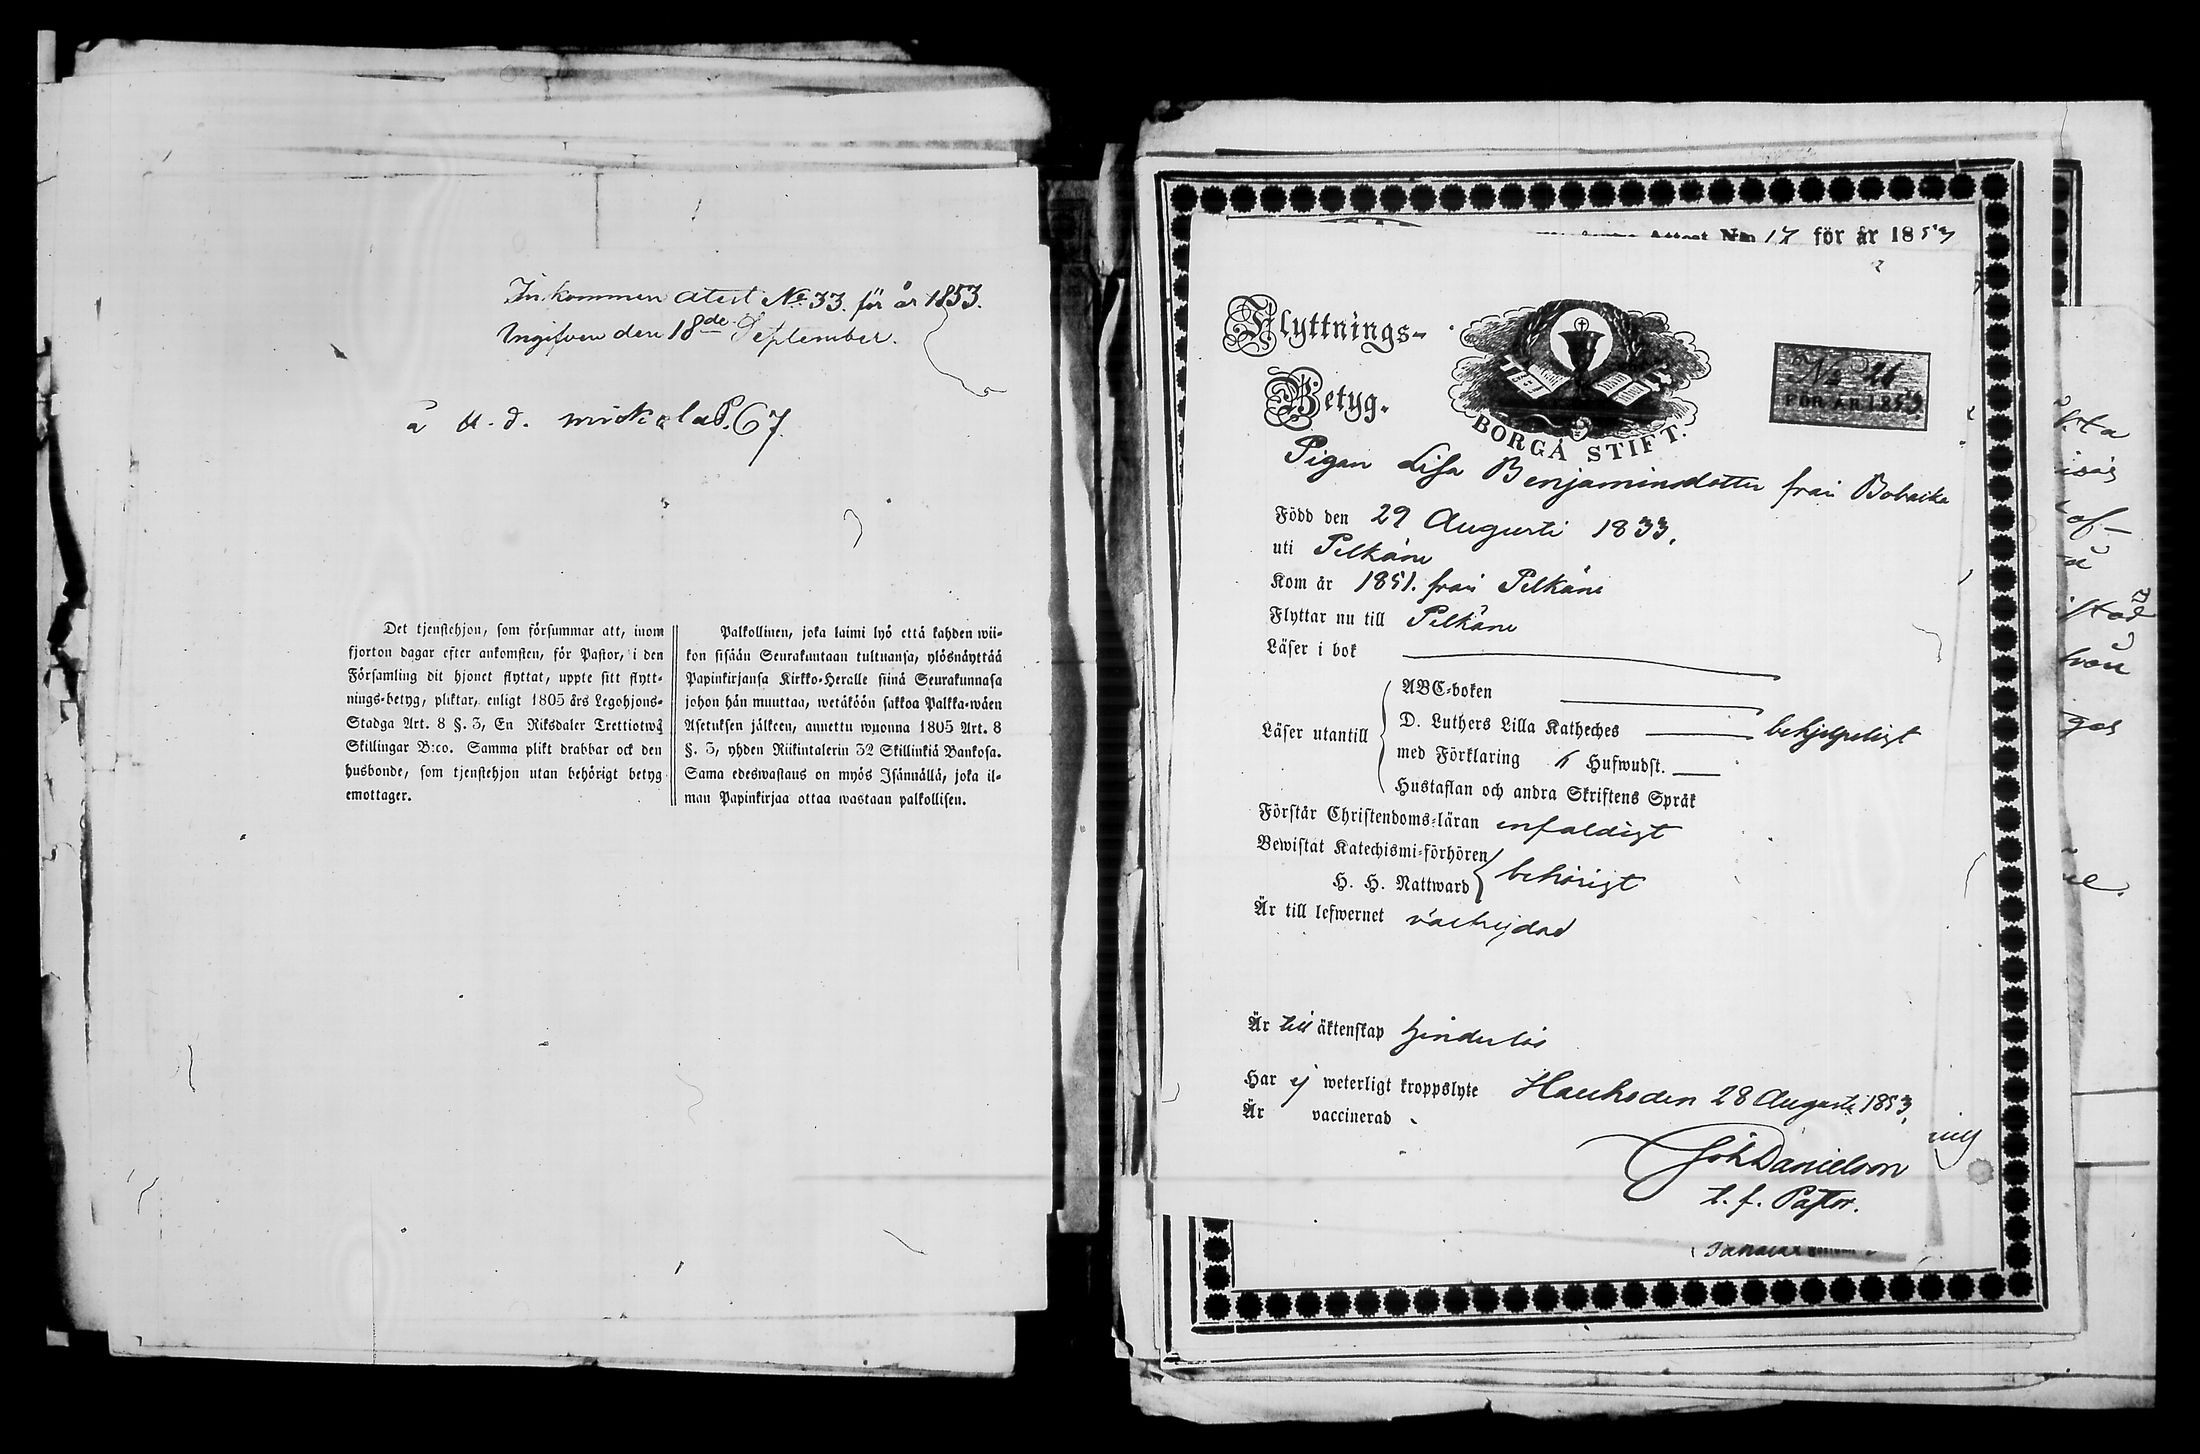 Inkommen atest No 33. för år 1853.
Ingifven den 18de September.
a u. d. mickola P. 67.
Det tjenstehjon, som försummar att, inom
fjorton dagar efter ankomsten, för Pastor, i den
Församling dit hjonet flyttat, uppte sitt flytt-
nings-betyg, pliktar, enligt 1805 års Legohjons-
Stadga Art. 8 §. 3, En Riksdaler Trettiotwå
Skillingar B:co. Samma plikt drabbar ock den
husbonde, som tjenstehjon utan behörigt betyg
emottager.
Palkollinen, joka laimi lyö että kahden wii-
kon sisään Seurakuntaan tultuansa, ylösnäyttää
Papinkirjansa Kirkko-Heralle siinä Seurakunnasa
johon hän muuttaa, wetäköön sakkoa Palkka-wäen
Asetuksen jälkeen, annettu wuonna 1805 Art. 8
§. 3, yhden Riikintalerin 32 Skillinkiä Bankosa.
Sama edeswastaus on myös Isännällä, joka il-
man Papinkirjaa ottaa wastaan palkollisen.
Attest No 17 för år 1853
Flyttnings-
Betyg.
BORGÅ STIFT.
No 21
FÖR ÅR 1853
Pigan Lisa Benjaminsdotter från
Född den 29 Augusti 1833.
uti Pelkäne
Kom år 1851. från Pelkäne
Flyttar nu till Pelkäne
Läser i bok
Läser utantill
ABC-boken
D. Luthers Lilla Katheches behjelpeligt
med Förklaring Hufwudst.
Hustaflan och andra Skriftens Språk
Förstår Christendoms-läran enfaldigt
Bewistat Katechismi-förhören
H. H. Nattward behörigt
Är till lefwernet välfrejdad
Är till äktenskap hinderlös
Har ej weterligt kroppslyte Hauho den 28 Augusti 1853.
Är vaccinerad
Joh Danielson
t. f. Pastor.